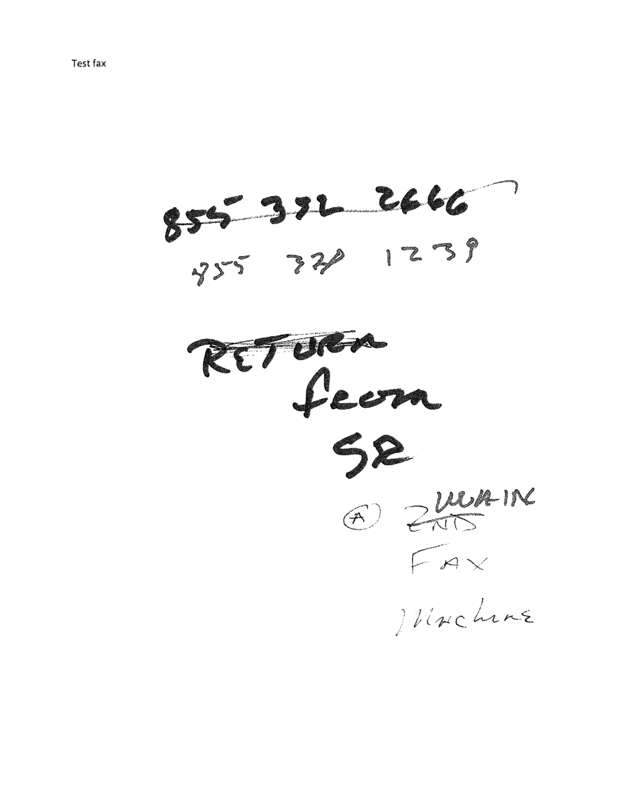 Test fax
855 352 2666
855 320 1239
RETURN
from
SR
MAIN
A 2ND
FAX
Machine